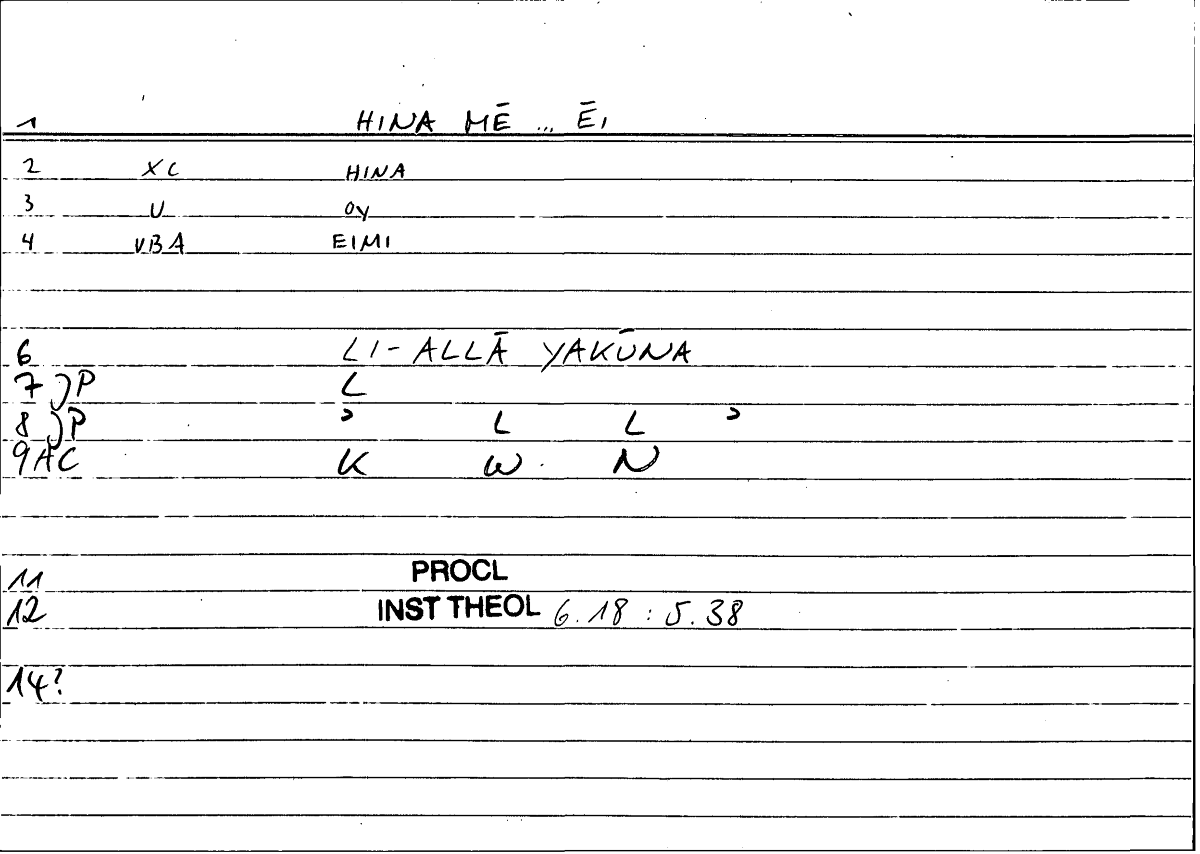 1 HINA MĒ ... ĒI
2 XC HINA
3 U OY
4 VBA EIMI
6 LI-ALLĀ YAKŪNA
7 JP L
8 JP ʾ L L ʾ
9AC K W N
11 PROCL
12 INST THEOL 6.18 : 5.38
14?